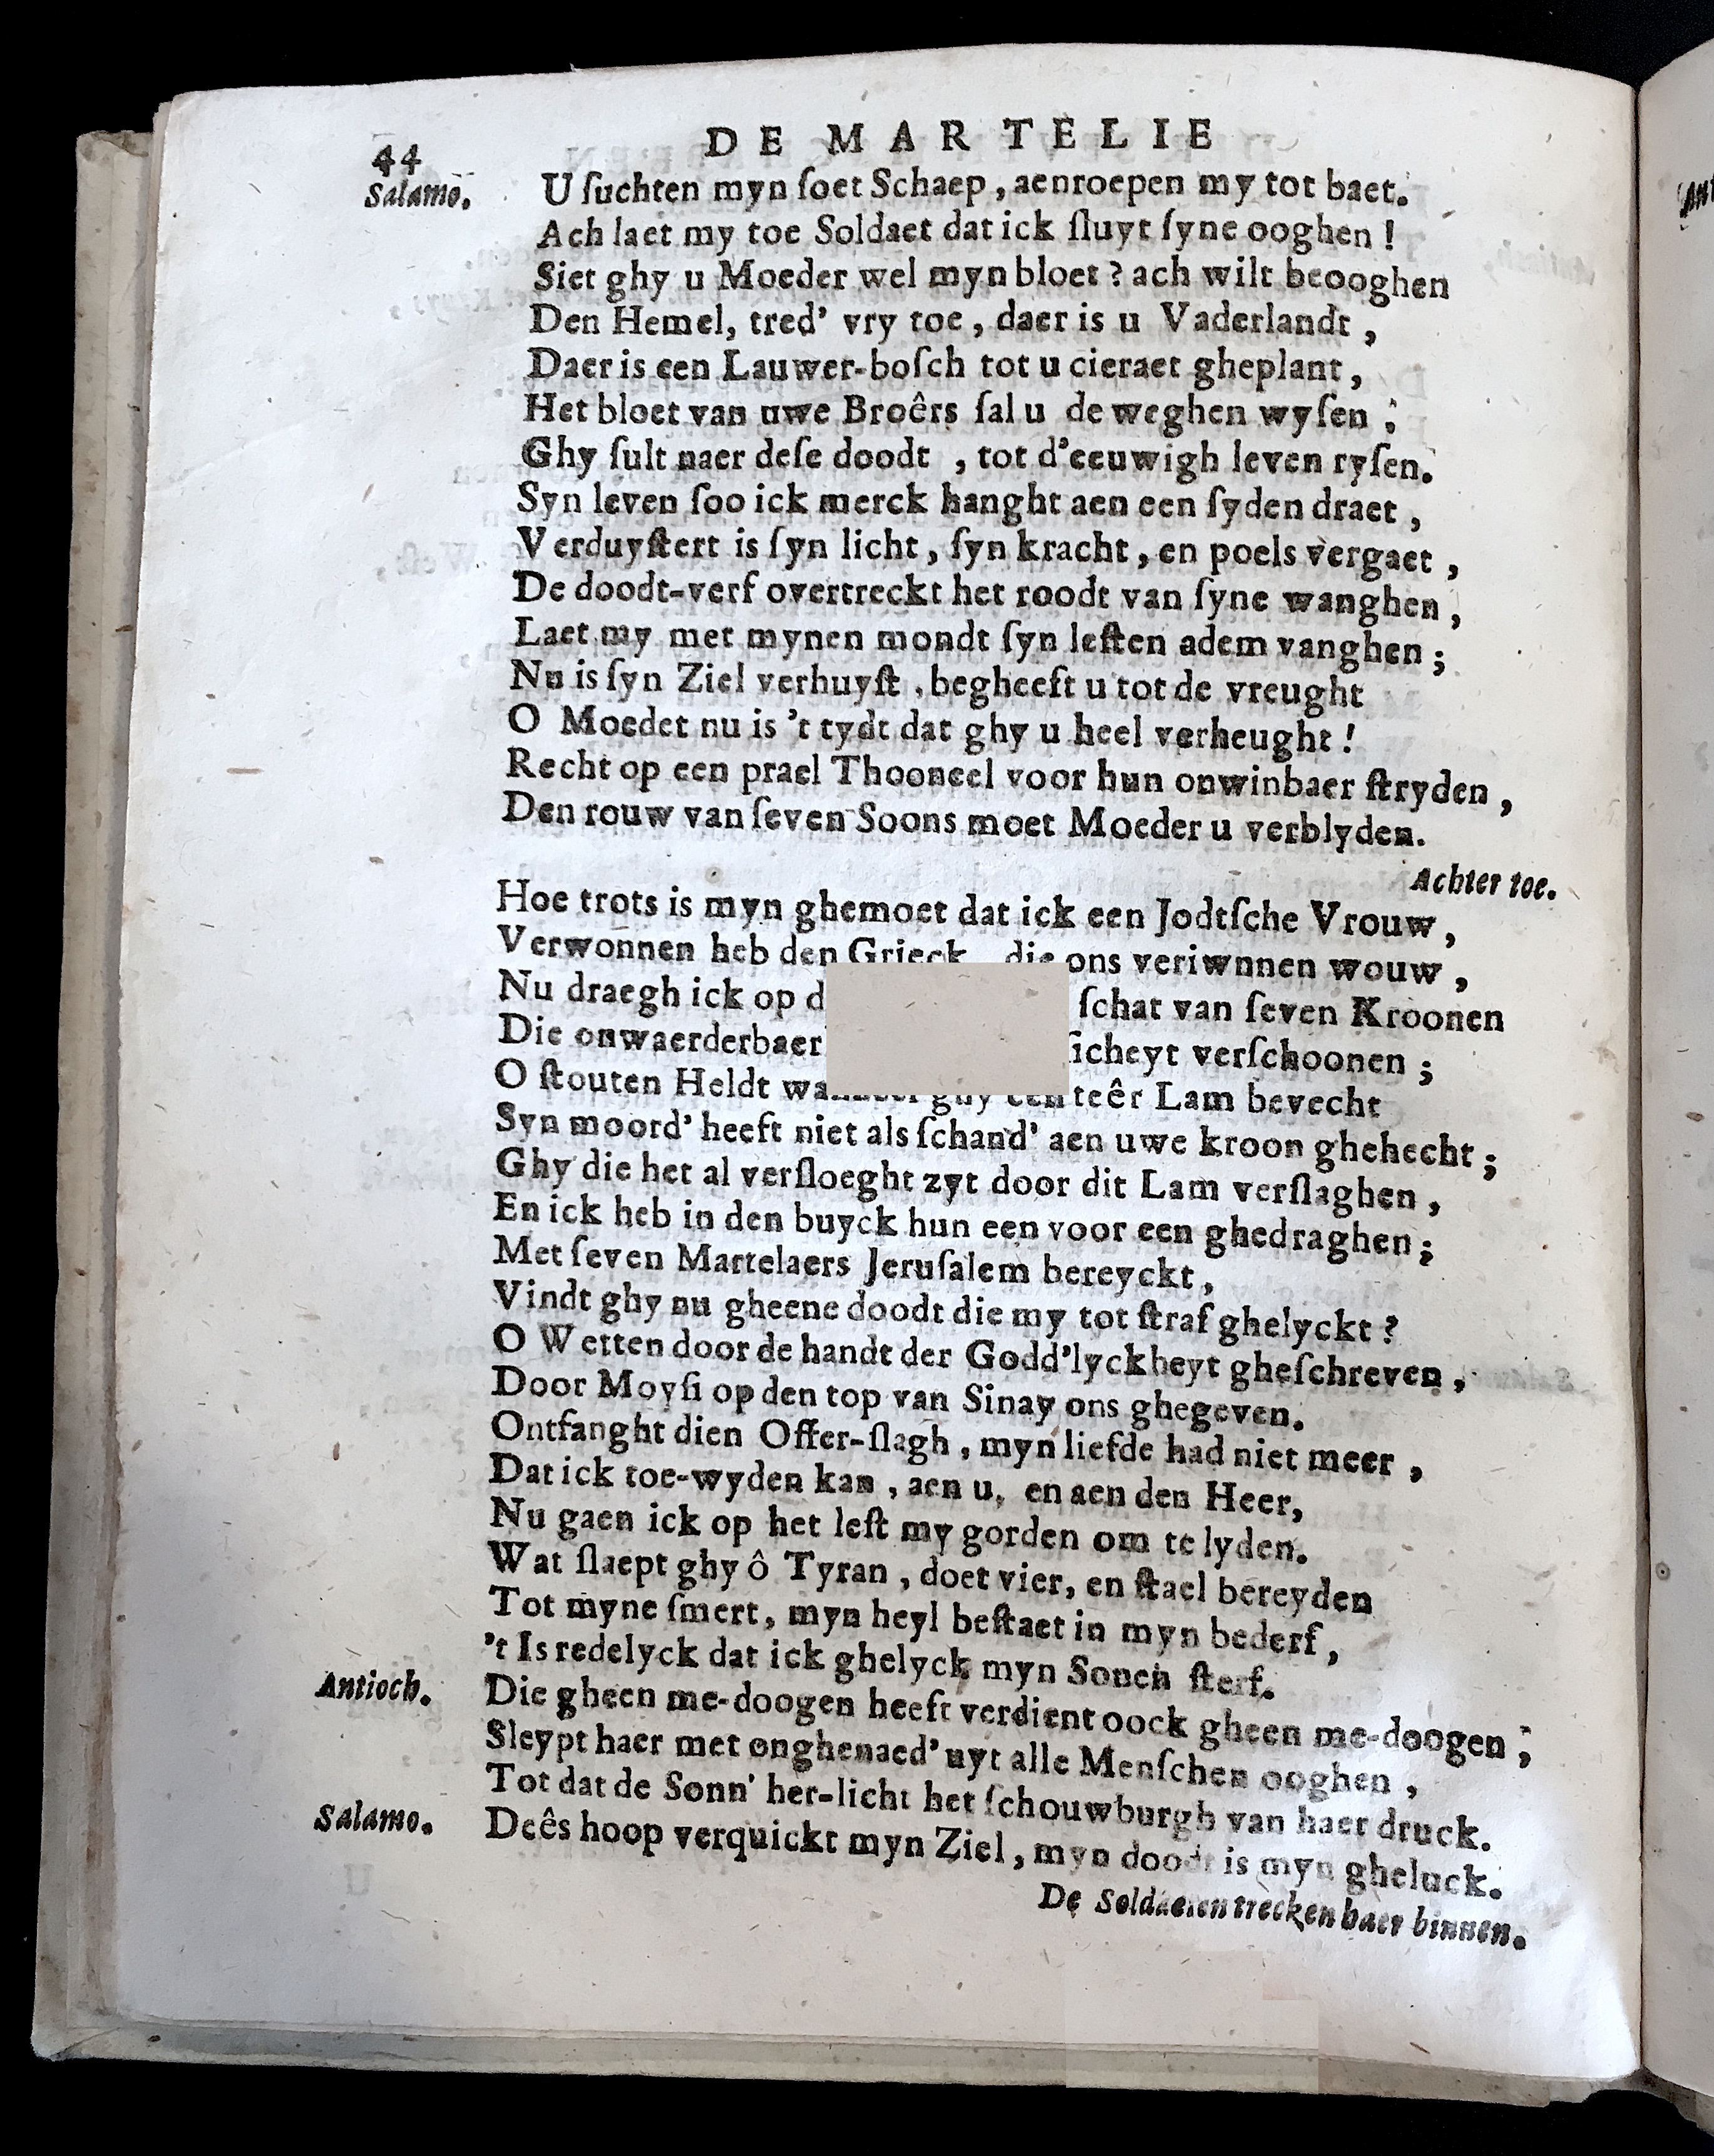 44 DE MARTELIE
Salamo. U ſuchten myn ſoet Schaep, aenroepen my tot baet.
Ach laet my toe Soldaet dat ick ſluyt ſyne ooghen!
Siet ghy u Moeder wel myn bloet? ach wilt beooghen
Den Hemel, tred' vry toe, daer is u Vaderlandt,
Daer is een Lauwer-boſch tot u cieraet gheplant,
Het bloet van uwe Broêrs ſal u de weghen wyſen;
Ghy ſult naer deſe doodt, tot d'eeuwigh leven ryſen.
Syn leven ſoo ick merck hanght aen een ſyden draet,
Verduyſtert is ſyn licht, ſyn kracht, en poels vergaet,
De doodt-verf overtreckt het roodt van ſyne wanghen,
Laet my met mynen mondt ſyn leſten adem vanghen;
Nu is ſyn Ziel verhuyſt, begheeft u tot de vreught
O Moedet nu is 't tydt dat ghy u heel verheught!
Recht op een prael Thooneel voor hun onwinbaer ſtryden,
Den rouw van ſeven Soons moet Moeder u verblyden.
Achter toe.
Hoe trots is myn ghemoet dat ick een Jodtſche Vrouw,
Verwonnen heb den Grieck die ons veriwnnen wouw,
Nu draegh ick op ſchat van ſeven Kroonen
Die onwaerderbaer verſchoonen;
O ſtouten Heldt ghy een teêr Lam bevecht
Syn moord' heeft niet als ſchand' aen uwe kroon ghehecht;
Ghy die het al verſloeght zyt door dit Lam verſlaghen,
En ick heb in den buyck hun een voor een ghedraghen;
Met ſeven Martelaers Jeruſalem bereyckt,
Vindt ghy nu gheene doodt die my tot ſtraf ghelyckt?
O Wetten door de handt der Godd'lyckheyt gheſchreven,
Door Moyſi op den top van Sinay ons ghegeven.
Ontfanght dien Offer-ſlagh, myn liefde had niet meer,
Dat ick toe-wyden kan, aen u, en aen den Heer,
Nu gaen ick op het leſt my gorden om te lyden.
Wat ſlaept ghy ô Tyran, doet vier, en ſtael bereyden
Tot myne ſmert, myn heyl beſtaet in myn bederf,
't Is redelyck dat ick ghelyck myn Sonen ſterf.
Antioch. Die gheen me-doogen heeft verdient oock gheen me-doogen;
Sleypt haer met onghenaed' uyt alle Menſchen ooghen,
Tot dat de Sonn' her-licht het ſchouwburgh van haer druck.
Salamo. Deês hoop verquickt myn Ziel, myn doodt is myn gheluck.
De Soldaeten trecken haer binnen.